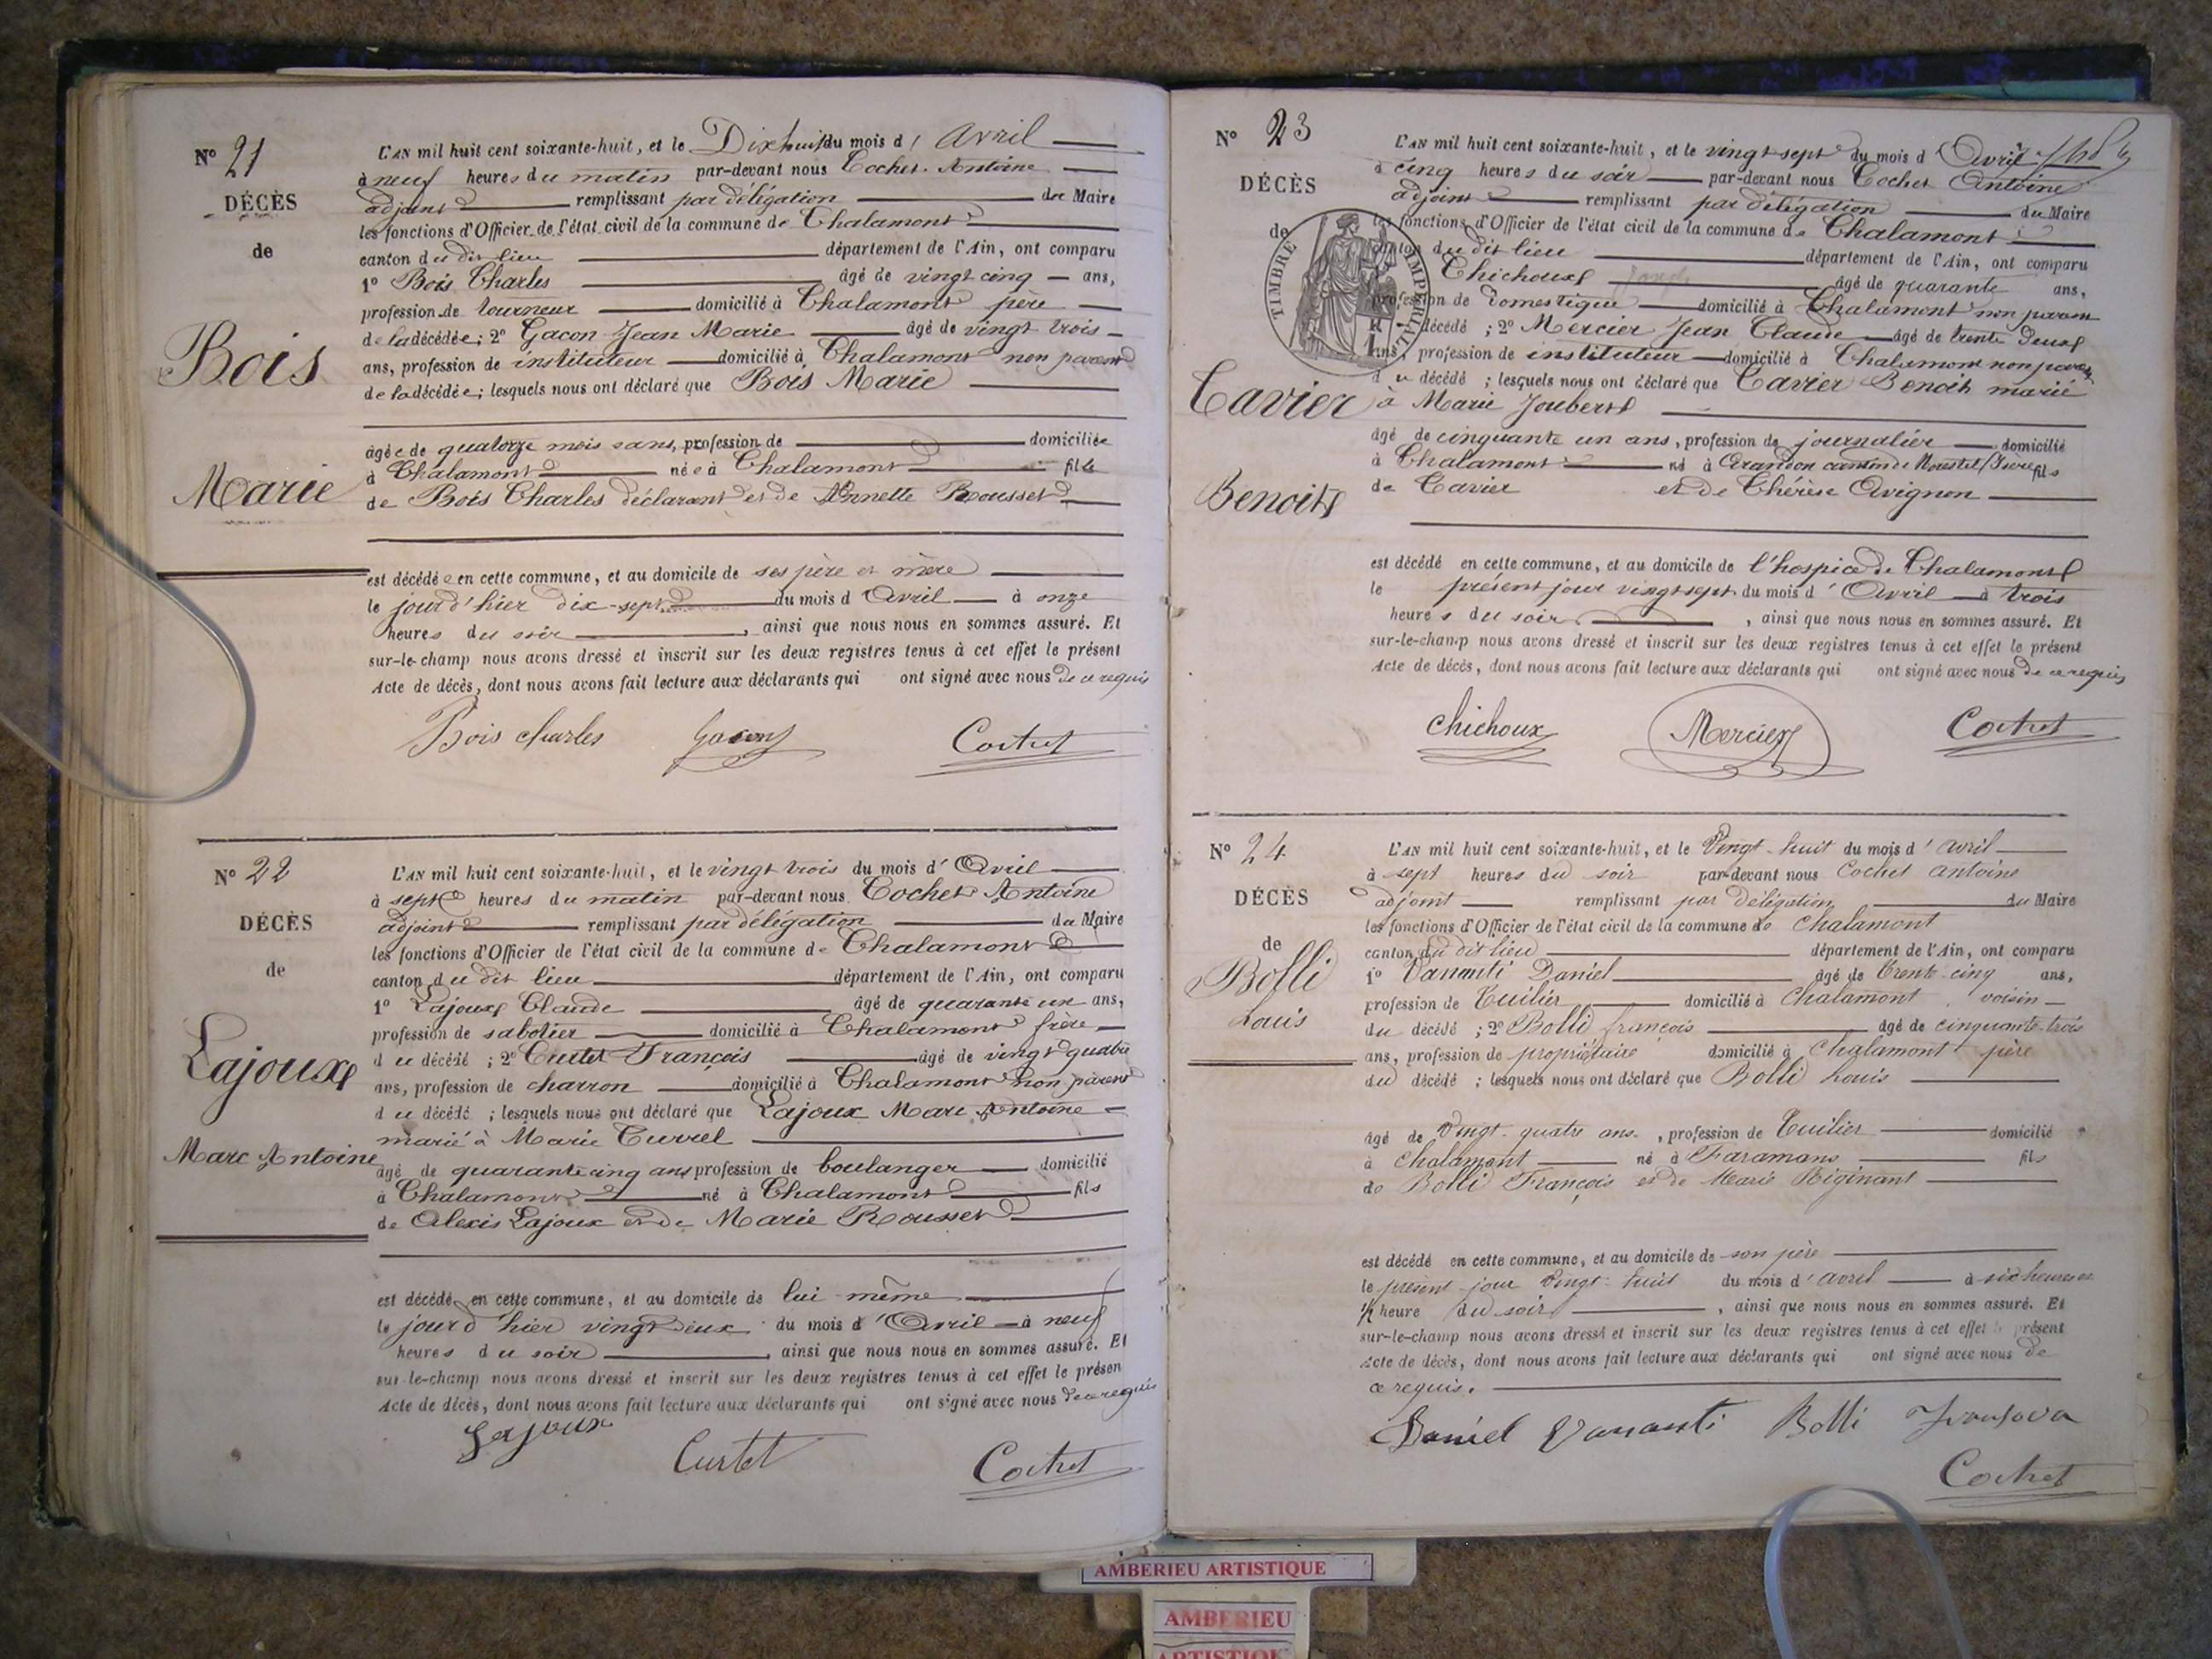 N° 21
DÉCÈS
de
Bois
Marie
L'AN mil huit cent soixante-huit, et le Dixhuit du mois d' Avril
à neuf heures du matin par-devant nous Cochet Antoine
adjoint remplissant par délégation du Maire
les fonctions d'Officier de l'état civil de la commune de Chalamont
canton du dit lieu département de l'Ain, ont comparu
1° Bois Charles âgé de vingt cinq ans,
profession de tourneur domicilié à Chalamont père
de la décédée; 2° Gacon Jean Marie âgé de vingt trois
ans, profession de instituteur domicilié à Chalamont non parent
de la décédée; lesquels nous ont déclaré que Bois Marie
âgée de quatorze mois sans, profession de domiciliée
à Chalamont née à Chalamont fille
de Bois Charles déclarant et de Annette Rousset
est décédée en cette commune, et au domicile de ses père et mère
le jour d'hier dix-sept du mois d Avril à onze
heures du soir, ainsi que nous nous en sommes assuré. Et
sur-le-champ nous avons dressé et inscrit sur les deux registres tenus à cet effet le présent
Acte de décès, dont nous avons fait lecture aux déclarants qui ont signé avec nous de ce requis
Bois charles Gacon Cochet
N° 22
DÉCÈS
de
Lajoux
Marc Antoine
L'AN mil huit cent soixante-huit, et le vingt trois du mois d' Avril
à sept heures du matin par-devant nous Cochet Antoine
adjoint remplissant par délégation du Maire
les fonctions d'Officier de l'état civil de la commune de Chalamont
canton du dit lieu département de l'Ain, ont comparu
1° Lajoux Claude âgé de quarante un ans,
profession de sabotier domicilié à Chalamont frère
du décédé ; 2° Curtet François âgé de vingt quatre
ans, profession de charron domicilié à Chalamont non parent
du décédé ; lesquels nous ont déclaré que Lajoux Marc Antoine
marié à Marie Currel
âgé de quarante cinq ans profession de boulanger domicilié
à Chalamont né à Chalamont fils
de Alexis Lajoux et de Marie Rousset
est décédé en cette commune, et au domicile de lui même
le jour d'hier vingt deux du mois d'Avril à neuf
heures du soir, ainsi que nous nous en sommes assuré. Et
sur-le-champ nous avons dressé et inscrit sur les deux registres tenus à cet effet le présen
Acte de décès, dont nous avons fait lecture aux déclarants qui ont signé avec nous de ce requis
Lajoux Curtet Cochet
N° 23
DÉCÈS
de
TIMBRE IMPÉRIAL
Cavier
Benoit
L'AN mil huit cent soixante-huit, et le vingt sept du mois d'Avril
à cinq heures du soir par-devant nous Cochet Antoine
adjoint remplissant par délégation du Maire
les fonctions d'Officier de l'état civil de la commune de Chalamont
canton du dit lieu département de l'Ain, ont comparu
Chichoux Joseph âgé de quarante ans,
profession de domestique domicilié à Chalamont non parent
décédé ; 2° Mercier Jean Claude âgé de trente deux
ans, profession de instituteur domicilié à Chalamont non parent
du décédé ; lesquels nous ont déclaré que Cavier Benoit marié
à Marie Joubert
âgé de cinquante un ans, profession de journalier domicilié
à Chalamont né à Arandon canton de Morestel (Isère) fils
de Cavier et de Thérèse Avignon
est décédé en cette commune, et au domicile de l'hospice de Chalamont
le présent jour vingt sept du mois d'Avril à trois
heures du soir, ainsi que nous nous en sommes assuré. Et
sur-le-champ nous avons dressé et inscrit sur les deux registres tenus à cet effet le présent
Acte de décès, dont nous avons fait lecture aux déclarants qui ont signé avec nous de ce requis
chichoux Mercier Cochet
N° 24
DÉCÈS
de
Bolli
Louis
L'AN mil huit cent soixante-huit, et le Vingt-huit du mois d'avril
à sept heures du soir par-devant nous Cochet antoine
adjoint remplissant par délégation du Maire
les fonctions d'Officier de l'état civil de la commune de Chalamont
canton du dit lieu département de l'Ain, ont comparu
1° Vananti Daniel âgé de trente-cinq ans,
profession de Tuilier domicilié à Chalamont voisin
du décédé ; 2° Bolli françois âgé de cinquante-trois
ans, profession de propriétaire domicilié à Chalamont père
du décédé ; lesquels nous ont déclaré que Bolli Louis
âgé de Vingt-quatre ans, profession de Tuilier domicilié
à Chalamont né à Faramans fils
de Bolli François et de Marie
est décédé en cette commune, et au domicile de son père
le présent jour Vingt-huit du mois d'avril à six heures et
1/2 heure du soir, ainsi que nous nous en sommes assuré. Et
sur-le-champ nous avons dressé et inscrit sur les deux registres tenus à cet effet le présent
Acte de décès, dont nous avons fait lecture aux déclarants qui ont signé avec nous de
ce requis.
Daniel Vananti Bolli
Cochet
AMBERIEU ARTISTIQUE
AMBERIEU
ARTISTIQUE